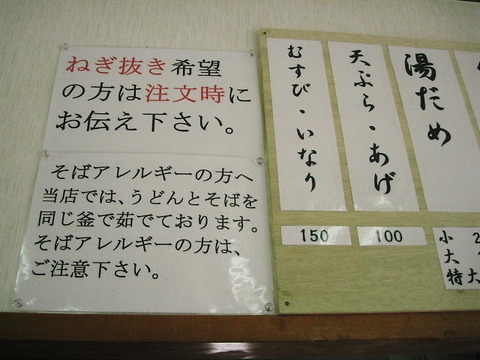 ねぎ抜き希望
の方は注文時に
お伝え下さい。
そばアレルギーの方へ
当店では、うどんとそばを
同じ釜で茹でております。
そばアレルギーの方は、
ご注意下さい。
湯だめ
天ぷら・あげ
むすび・いなり
150
100
小 2
大
特大